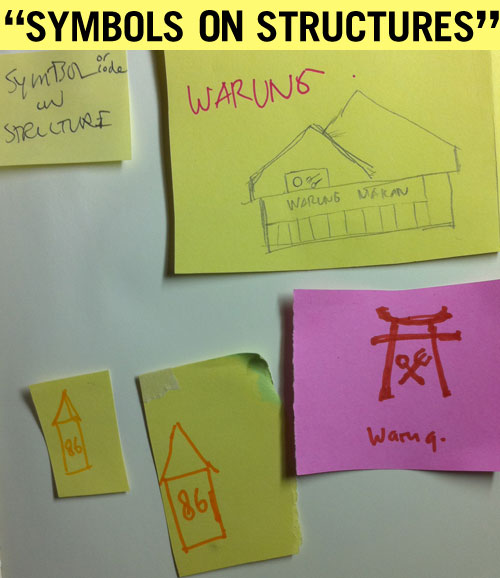 “SYMBOLS ON STRUCTURES”
SYMBOL or code
on
STRUCTURE
WARUNG
WARUNG MAKAN
warung.
86
86